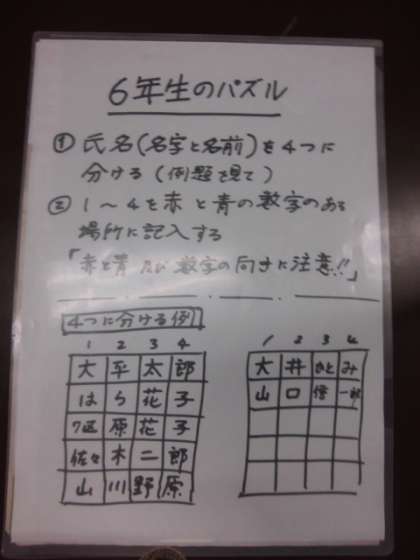 6年生のパズル
① 氏名(名字と名前)を4つに
分ける(例題を見て)
② 1〜4を赤と青の数字のある
場所に記入する
「赤と青 数字の向きに注意!!」
4つに分ける例
1 2 3 4
大 平 太 郎
はら 花 子
原 花 子
佐々 木 二 郎
山 川 野 原
1 2 3 4
大 井 さと み
山 口 信 一郎